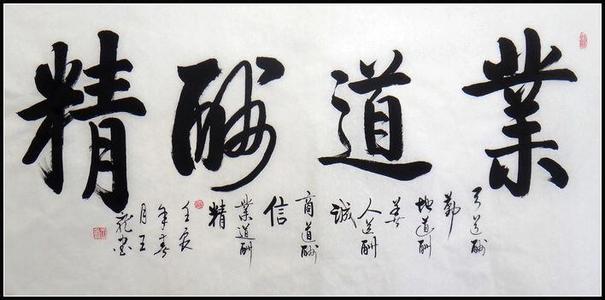 業道酬精
天道酬
勤
地道酬
善
人道酬
誠
商道酬
信
業道酬
精
壬辰
年春
月王
龍